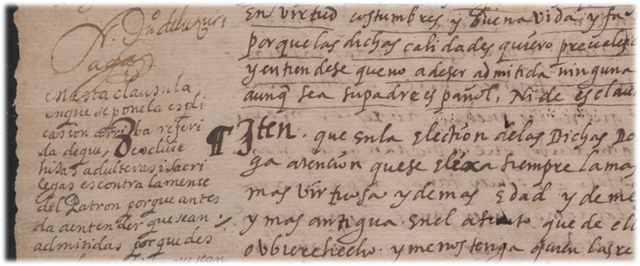 en virtud costumbres y buena vida, y fa
porque las dichas calidades quiero prevalesc
y entiendese que no a de ser admitida ninguna
aunq sea su padre español, Ni de esclau
¶ Iten. que en la election de las Dichas Do
ga atencion que se elixa siempre la mas
mas virtuosa y de mas edad y de me
y mas antigua. en el que de el
oubiere hecho. y menos tenga quien las re
en esta clausula
en que se pone la espli
cacion arriba referi
da de que, se excluie
hijas adulteras i sacri
legas es contra la mente
del Patron porque antes
da a entender que sean
admitidas porque des